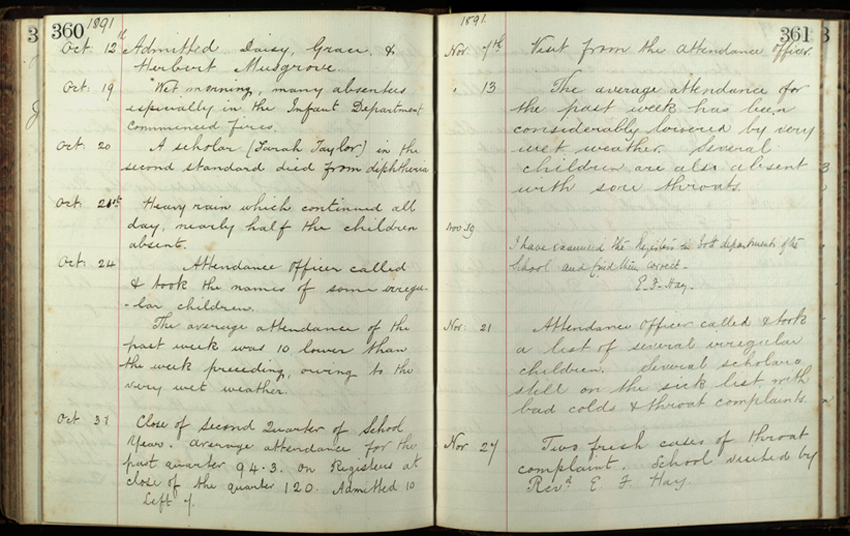 360
1891
Oct. 12th Admitted Daisy, Grace, &
Herbert Musgrove.
Oct: 19 Wet morning, many absentees
especially in the Infant Department
commenced fires.
Oct. 20 A scholar (Sarah Taylor) in the
second standard died from diphtheria
Oct: 21st Heavy rain which continued all
day, nearly half the children
absent.
Oct: 24 Attendance Officer called
& took the names of some irregu-
-lar children.
The average attendance of the
past week was 10 lower than
the week preceding, owing to the
very wet weather.
Oct 31 Close of Second Quarter of School
Year. Average attendance for the
past quarter 94.3. On Registers at
close of the quarter 120. Admitted 10
Left 7.
361
1891.
Nov. 7th Visit from the attendance officer.
" 13 The average attendance for
the past week has been
considerably lowered by very
wet weather. Several
children are also absent
with sore throats.
Nov 19
I have examined the Registers in both departments of the
School and find them correct.
E. F. Hay.
Nov: 21 Attendance Officer called & took
a list of several irregular
children. Several scholars
still on the sick list with
bad colds & throat complaints.
Nov 27 Two fresh cases of throat
complaint. School visited by
Revd. E. F. Hay.